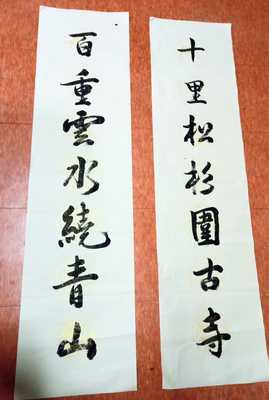 十里松杉圍古寺
百重雲水繞青山